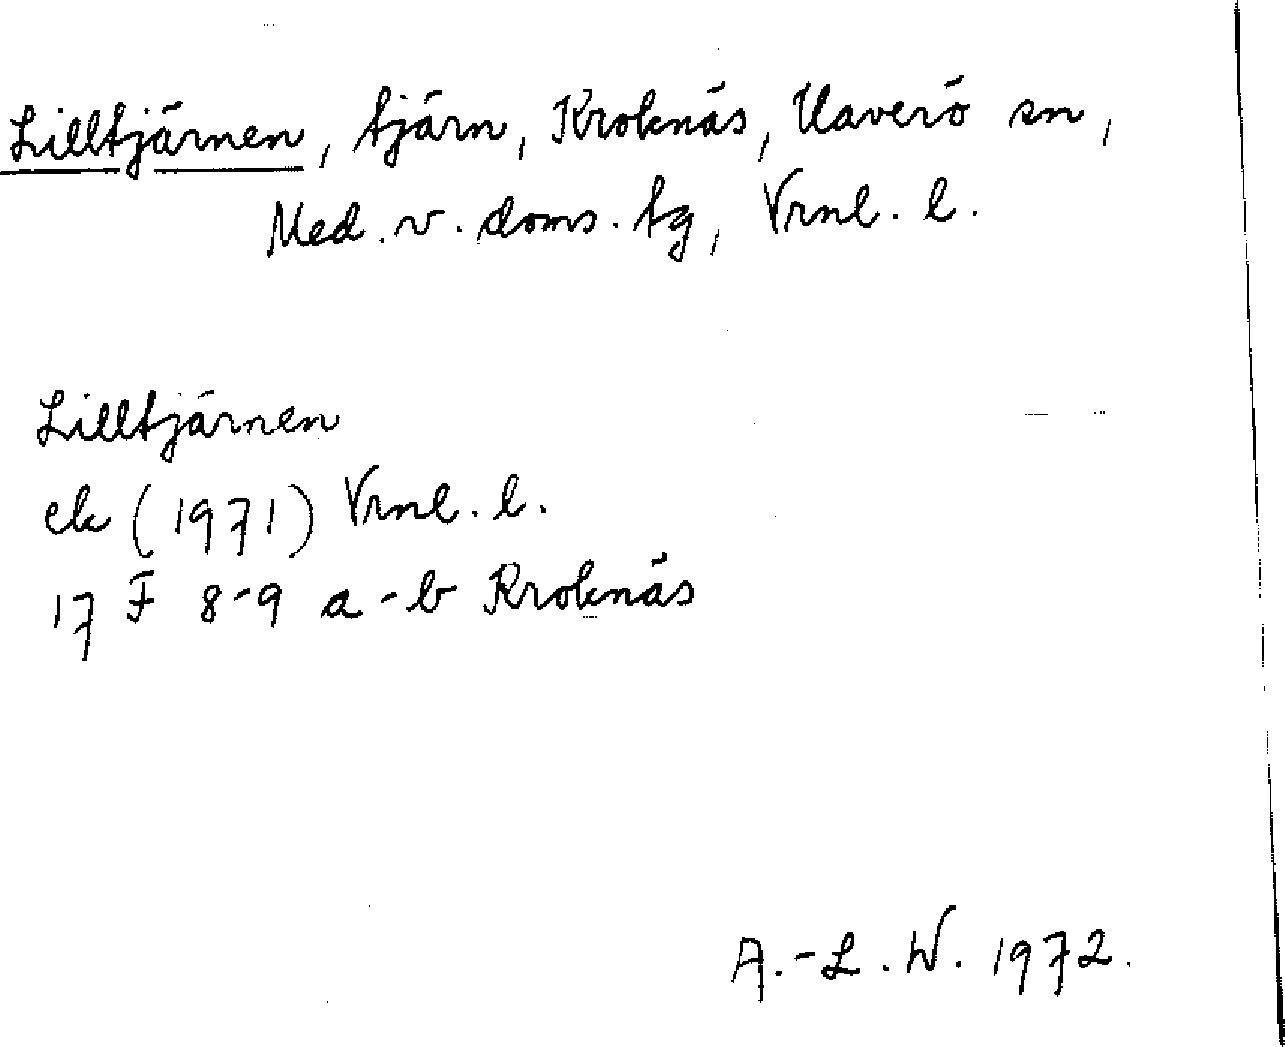 Lilltjärnen, tjärn, Kroknäs, Haverö sn,
Med. v. doms. tg, Vrnl. l.
Lilltjärnen
ek (1971) Vrnl. l.
17 F 8-9 a-b Kroknäs
A.-L. W. 1972.